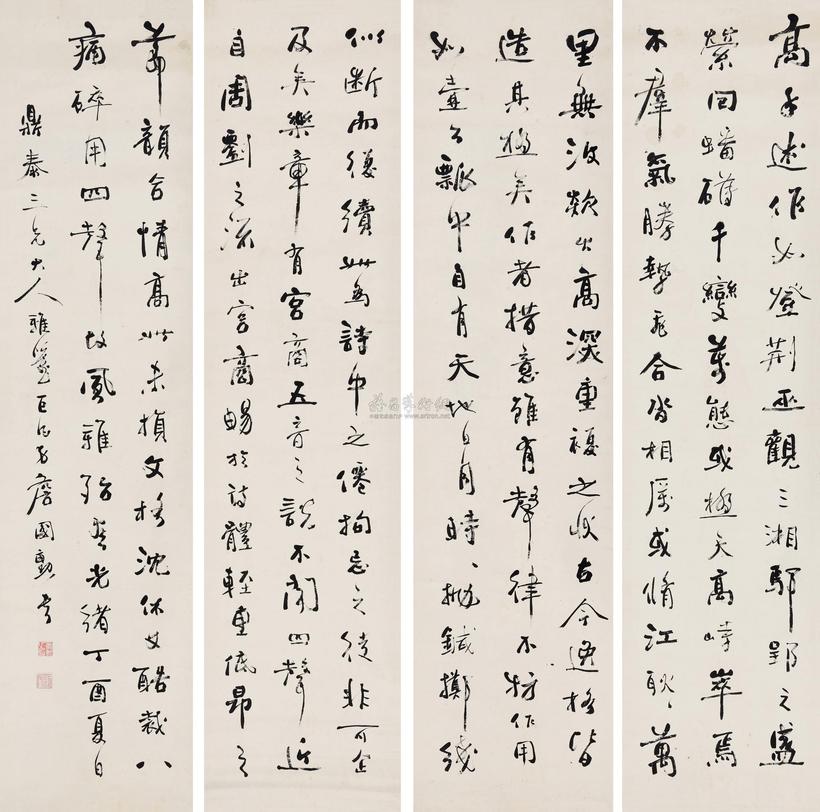 高手述作如登荊巫觀三湘鄢郢之盛
縈回蟠礴千變萬態或極天高峙崒焉
不羣氣勝勢飛合沓相屬或脩江耿〻萬
里無波欻出高深重複之狀古今逸格皆
造其極矣作者措意雖有聲律不妨作用
如壺公瓢中自有天地日月時〻抛鍼擲綫
似斷而復續此為詩中之僊拘忌之徒非可企
及矣樂章有宮商五音之說不聞四聲近
自周劉之流出宮商暢於詩體輕重低昂之
節韻合情高此未損文格沈休文酷裁八
病碎用四聲故風雅殆盡光緒丁酉夏日
鼎泰三兄大人雅鑒詹國勳書